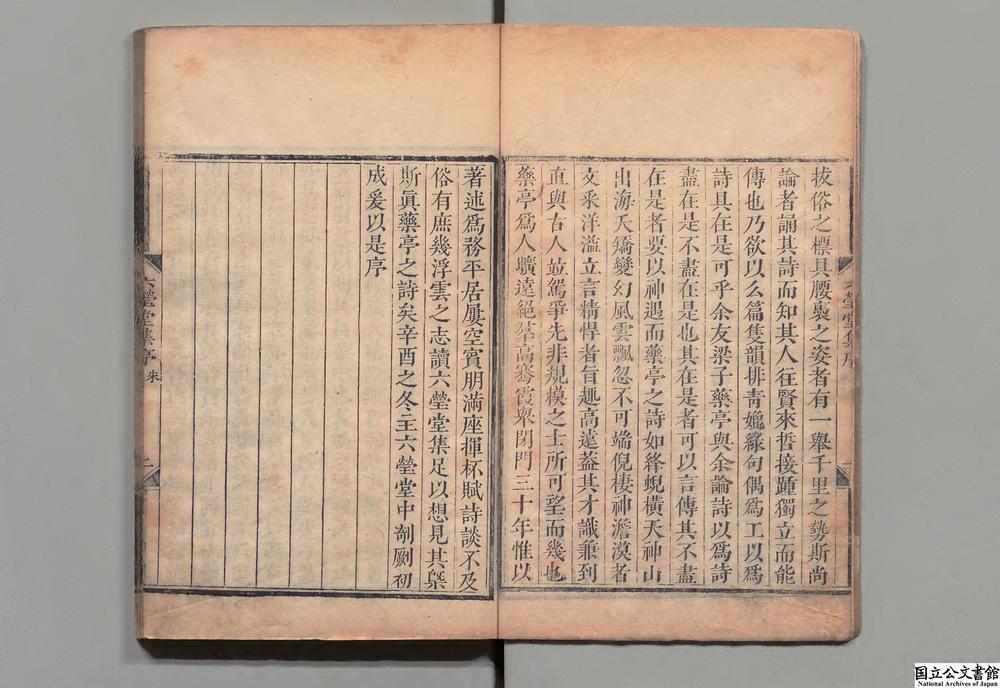 拔俗之標具腰褭之姿者有一舉千里之勢斯尚
論者誦其詩而知其人往賢來哲接踵獨立而能
傳也乃欲以么篇隻韻排青孅綠句偶爲工以爲
詩具在是可乎余友梁子藥亭與余論詩以爲詩
盡在是不盡在是也其在是者可以言傳其不盡
在是者要以神遇而藥亭之詩如絳蜺橫天神山
出海夭矯變幻風雲飄忽不可端倪棲神澹漠者
文采洋溢立言精悍者旨趣高遠葢其才識兼到
直與古人竝駕爭先非規模之士所可望而幾也
藥亭爲人曠遠絕塵高騫霞舉閉門三十年惟以
六瑩堂集序
著述爲務平居屢空賓朋滿座揮杯賦詩談不及
俗有庶幾浮雲之志讀六瑩堂集足以想見其槩
斯眞藥亭之詩矣辛酉之冬主六瑩堂中剞劂初
成爰以是序
六瑩堂集序
二
国立公文書館
National Archives of Japan